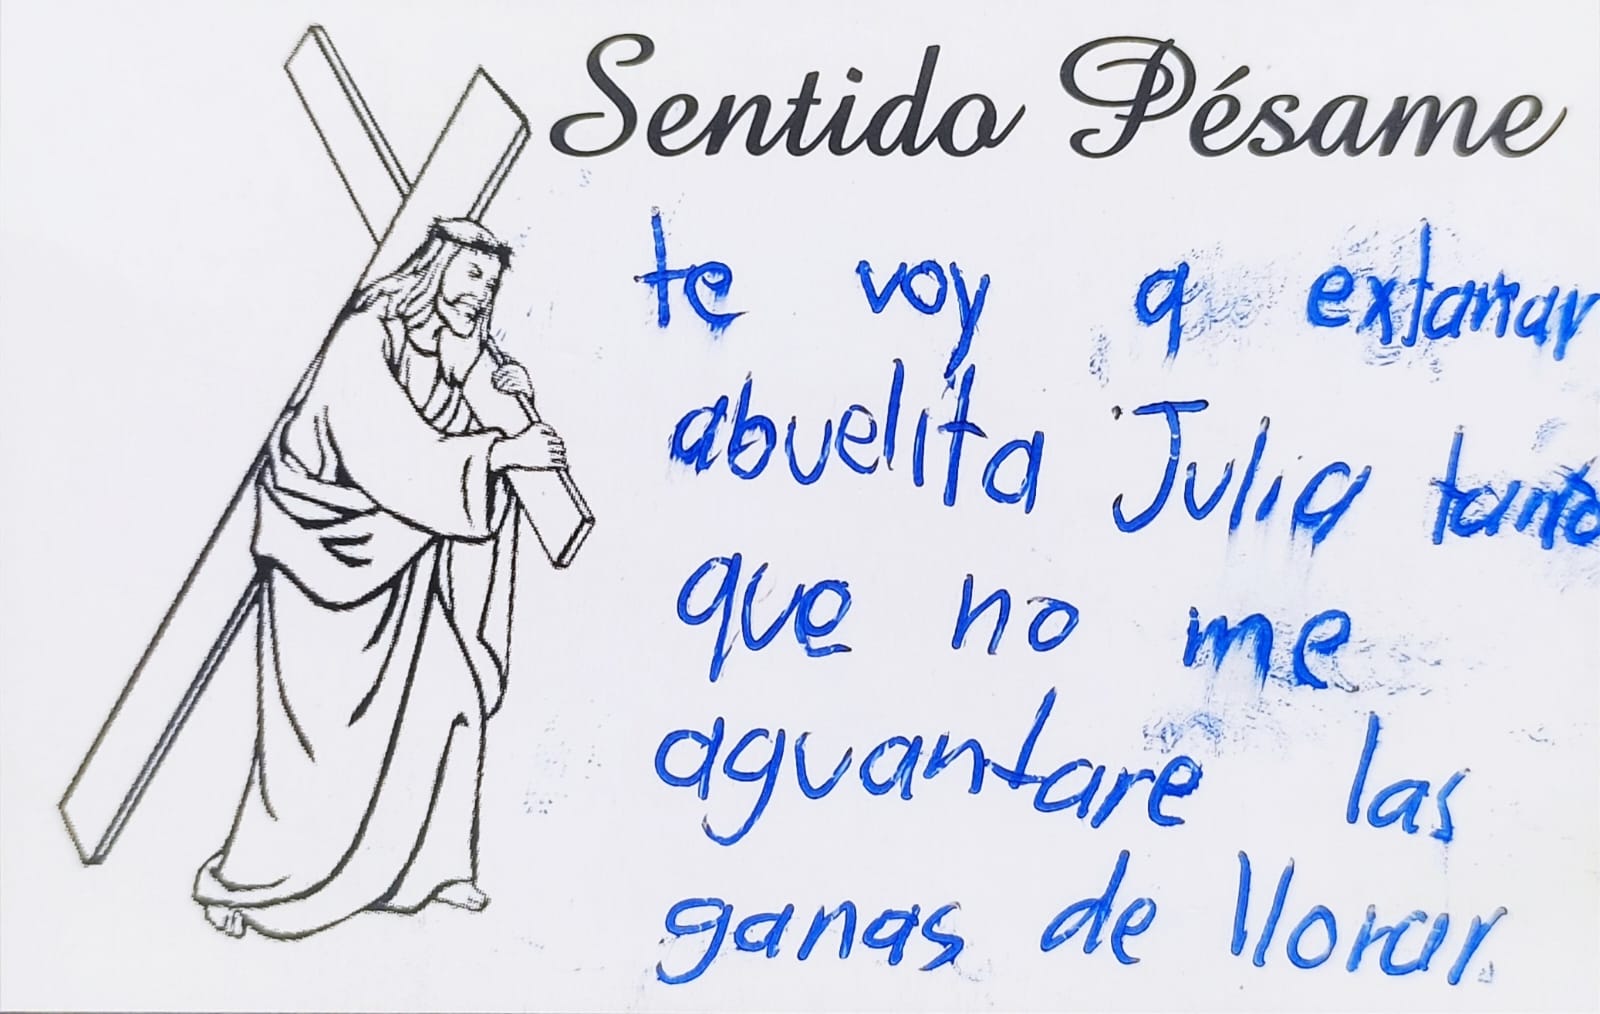 Sentido Pésame
te voy a extañar
abuelita Julia tanto
que no me
aguantare las
ganas de llorar